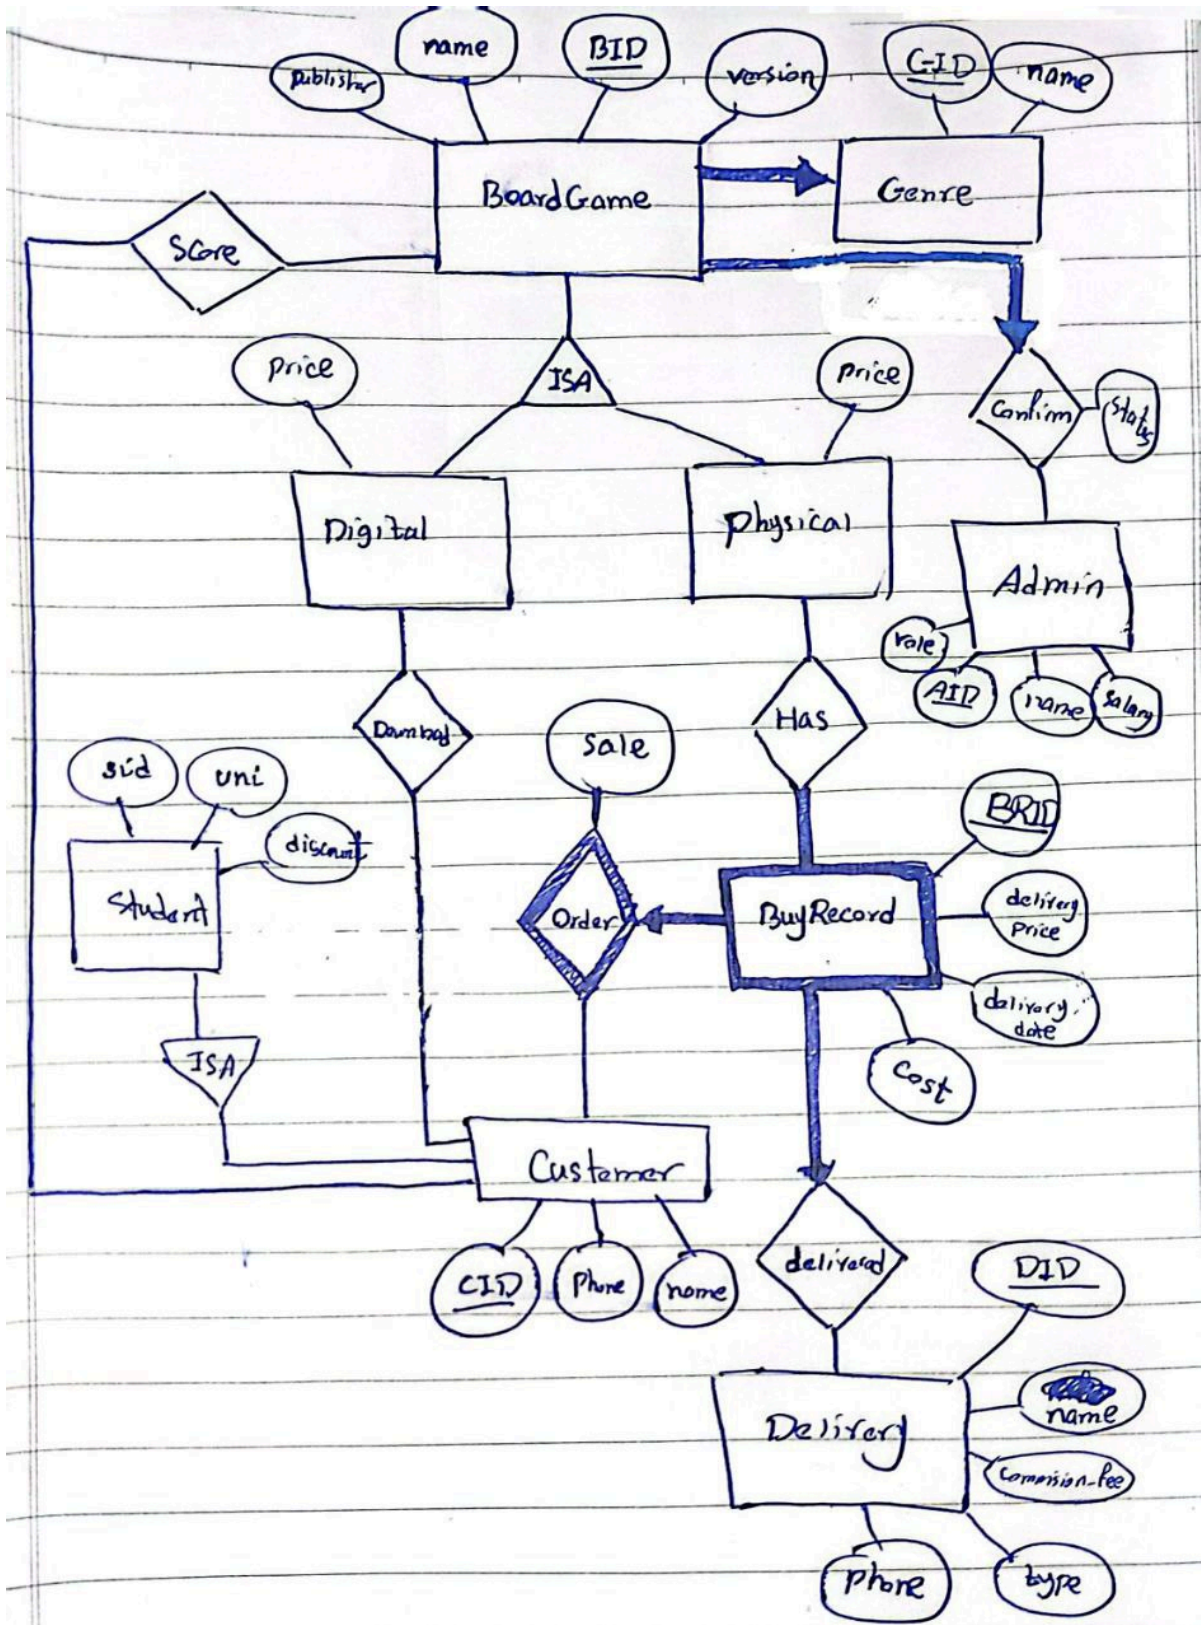 name
BID
GID
name
publisher
version
BoardGame
Genre
Score
price
ISA
price
Confirm
Status
Digital
Physical
Admin
role
AID
name
salary
Download
Has
sale
sid
uni
discount
BRID
Student
Order
BuyRecord
delivery
price
delivery
date
ISA
Cost
Customer
CID
Phone
name
delivered
DID
Delivery
name
commision-fee
phone
type